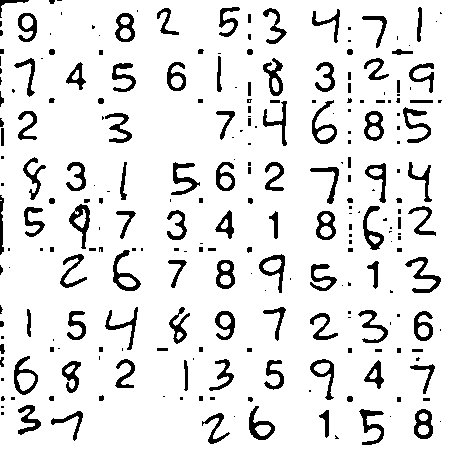 9 8 2 5 3 4 7 1
7 4 5 6 1 8 3 2 9
2 3 7 4 6 8 5
8 3 1 5 6 2 7 9 4
5 9 7 3 4 1 8 6 2
2 6 7 8 9 5 1 3
1 5 4 8 9 7 2 3 6
6 8 2 1 3 5 9 4 7
3 7 2 6 1 5 8